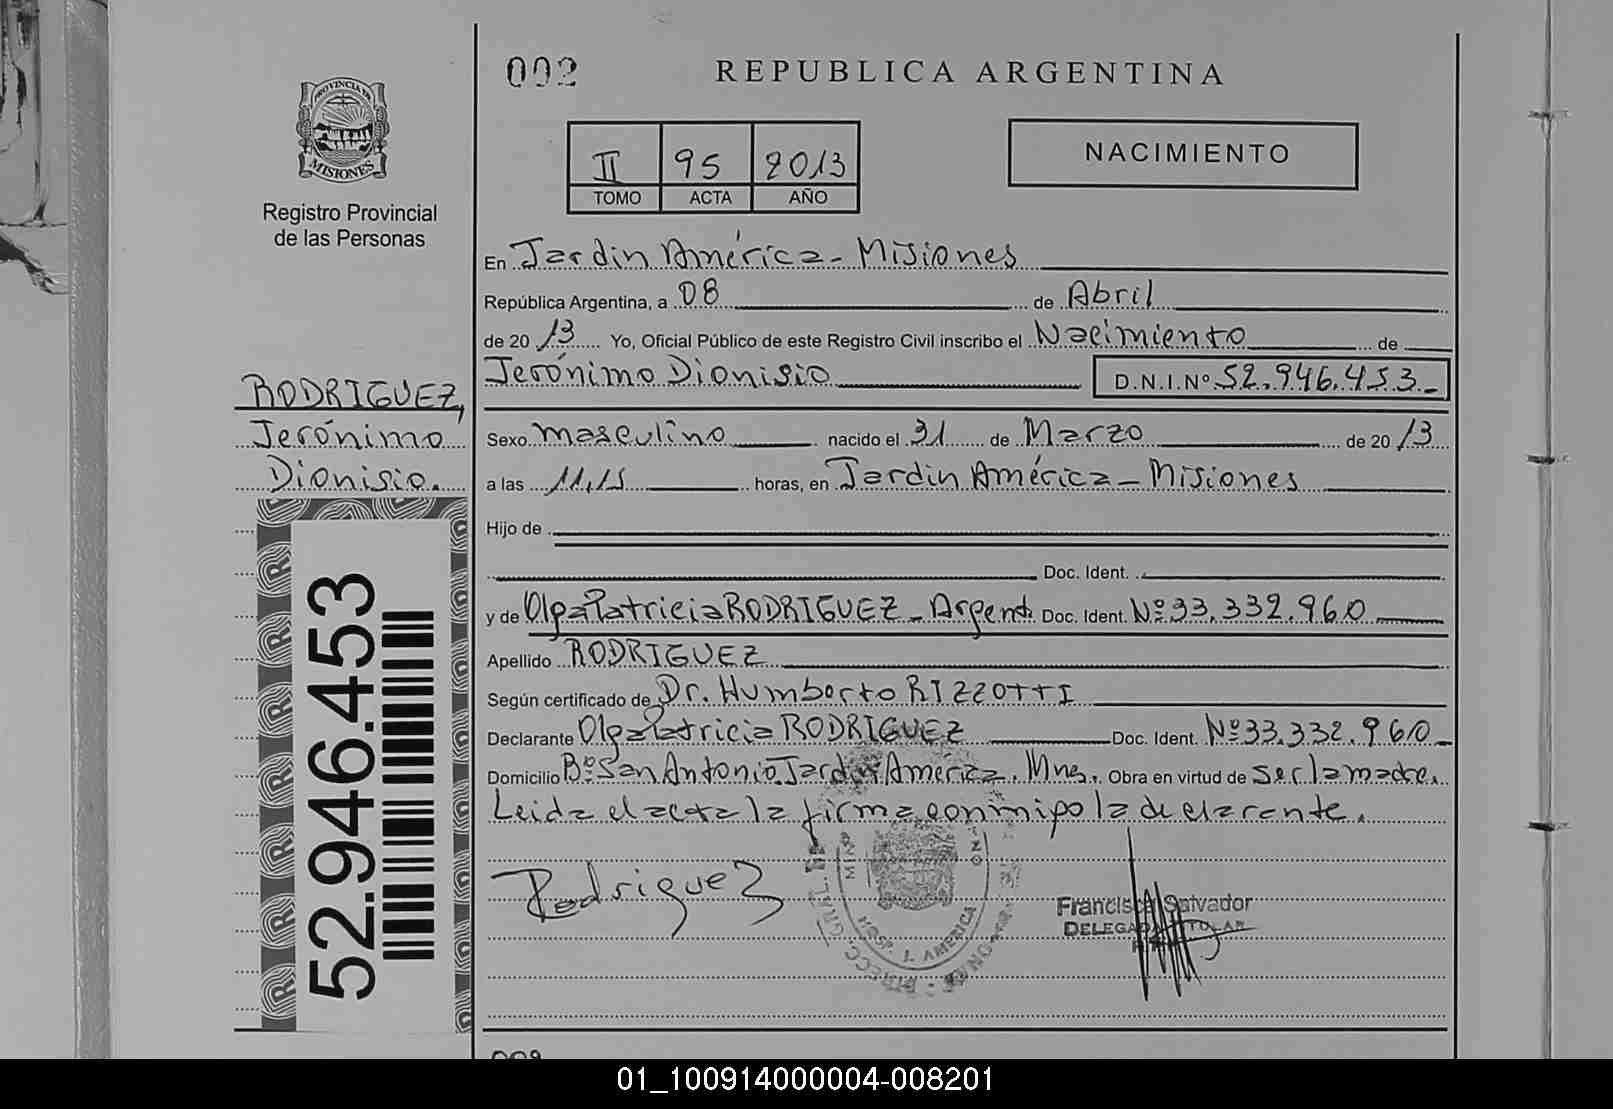 002
REPUBLICA ARGENTINA
PROVINCIA DE
MISIONES
Registro Provincial
de las Personas
II 95 2013
TOMO ACTA AÑO
NACIMIENTO
En Jardin América - Misiones
República Argentina, a 08 de Abril
de 20 13 Yo, Oficial Público de este Registro Civil inscribo el Nacimiento de
Jerónimo Dionisio D.N.I.Nº 52.946.453-
RODRIGUEZ,
Jerónimo
Dionisio.
Sexo masculino nacido el 31 de Marzo de 20 13
a las 11,15 horas, en Jardin América - Misiones
Hijo de
Doc. Ident.
y de Olga Patricia RODRIGUEZ - Argent. Doc. Ident. Nº 33.332.960
Apellido RODRIGUEZ
Según certificado de Dr. Humberto RIZZOTTI
Declarante Olga Patricia RODRIGUEZ Doc. Ident. Nº 33.332.960
Domicilio Bº San Antonio Jardin America. Mnes. Obra en virtud de ser la madre.
Leida el acta la firma conmigo la declarante.
52.946.453
Rodriguez
HOSP. J. AMERICA
Salvador
01_100914000004-008201